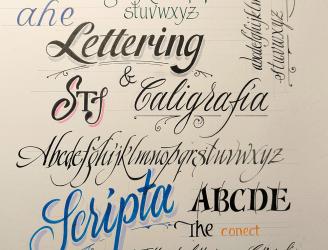 ahe
stuvwxyz
Lettering
&
STf Caligrafía
Abcdefghijklmnopqrstuvwxyz
Scripta ABCDE
The conect